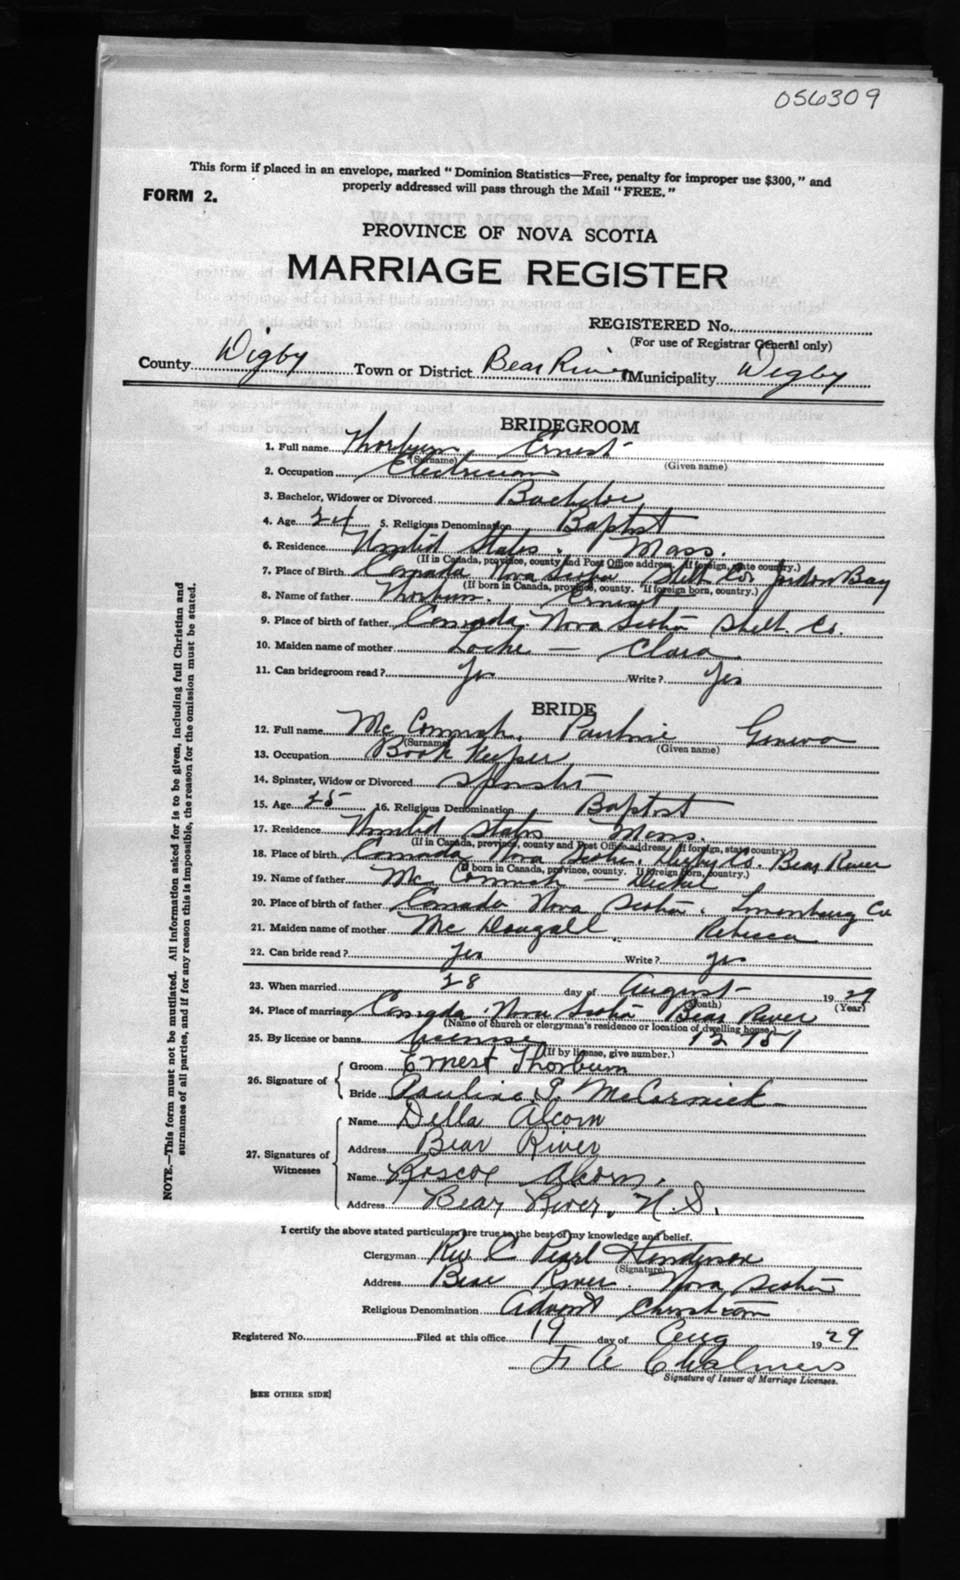 056309
This form if placed in an envelope, marked "Dominion Statistics—Free, penalty for improper use $300," and
properly addressed will pass through the Mail "FREE."
FORM 2.
PROVINCE OF NOVA SCOTIA
MARRIAGE REGISTER
REGISTERED No.
(For use of Registrar General only)
County Digby Town or District Bear River Municipality Digby
BRIDEGROOM
1. Full name Thorburn Ernest
(Surname) (Given name)
2. Occupation Electrician
3. Bachelor, Widower or Divorced Bachelor
4. Age 24 5. Religious Denomination Baptist
6. Residence United States, Mass.
(If in Canada, province, county and Post Office address. If foreign, state country.)
7. Place of Birth Canada Nova Scotia Shelb. Co. Jordon Bay
(If born in Canada, province, county. If foreign born, country.)
8. Name of father Thorburn. Ernest
9. Place of birth of father Canada, Nova Scotia Shelb. Co.
10. Maiden name of mother Locke — Clara
11. Can bridegroom read? Yes Write? Yes
BRIDE
12. Full name McCormick, Pauline Geneva
(Surname) (Given name)
13. Occupation Book Keeper
14. Spinster, Widow or Divorced Spinster
15. Age 25 16. Religious Denomination Baptist
17. Residence United States Mass.
(If in Canada, province, county and Post Office address. If foreign, state country)
18. Place of birth Canada Nova Scotia, Digby Co. Bear River
(If born in Canada, province, county. If foreign born, country.)
19. Name of father McCormick —
20. Place of birth of father Canada Nova Scotia, Lunenburg Co
21. Maiden name of mother McDougall, Rebecca
22. Can bride read? Yes Write? Yes
23. When married 28 day of August 1929
(Month) (Year)
24. Place of marriage Canada, Nova Scotia Bear River
(Name of church or clergyman's residence or location of dwelling house.)
25. By license or banns License 12751
(If by license, give number.)
26. Signature of
Groom Ernest Thorburn
Bride Pauline G. McCormick
27. Signatures of Witnesses
Name Della Alcorn
Address Bear River
Name Roscoe Alcorn.
Address Bear River, N.S.
I certify the above stated particulars are true to the best of my knowledge and belief.
Clergyman Rev C Pearl Henderson
(Signature)
Address Bear River. Nova Scotia
Religious Denomination Advent Christian
Registered No. Filed at this office 19 day of Aug 1929
F. A Chalmers
Signature of Issuer of Marriage Licenses.
[SEE OTHER SIDE]
NOTE.—This form must not be mutilated. All information asked for is to be given, including full Christian and
surnames of all parties, and if for any reason this is impossible, the reason for the omission must be stated.